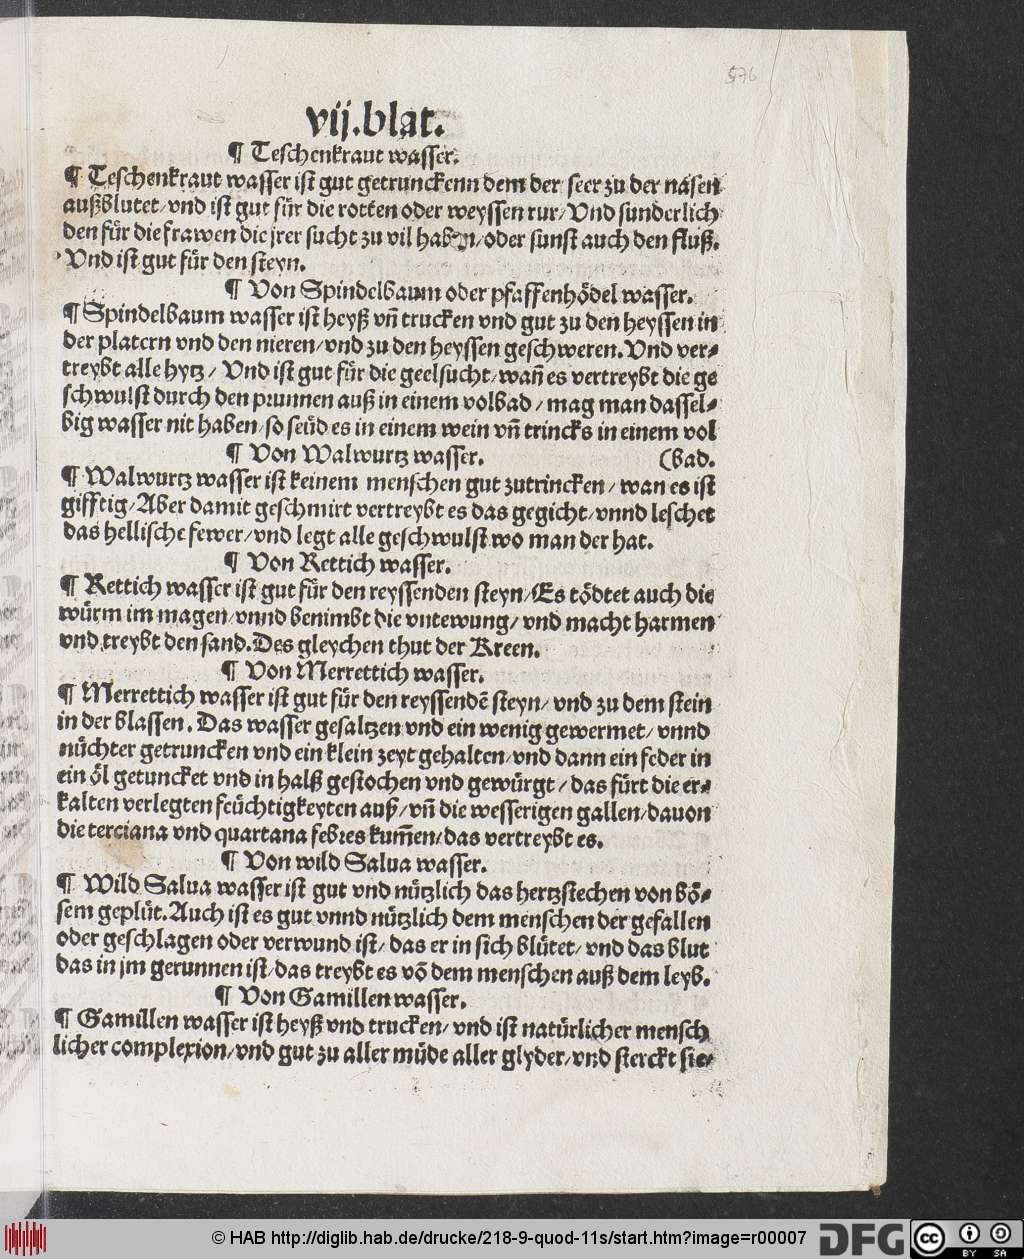 576
vij.blat.
¶ Teschenkraut wasser.
¶ Teschenkraut wasser ist gut getrunckenn dem der seer zu der nasen
außblutet/vnd ist gut für die rotten oder weyssen rur/Vnd sunderlich
den für die frawen die jrer sucht zu vil haben/oder sunst auch den fluß.
Vnd ist gut für den steyn.
¶ Von Spindelbaum oder pfaffenhödel wasser.
¶ Spindelbaum wasser ist heyß vñ trucken vnd gut zu den heyssen in
der platern vnd den nieren/vnd zu den heyssen geschweren.Vnd ver⸗
treybt alle hytz/ Vnd ist gut für die geelsucht/wañ es vertreybt die ge
schwulst durch den prunnen auß in einem volbad/mag man dassel⸗
big wasser nit haben/so seüd es in einem wein vñ trincks in einem vol
¶ Von Walwurtz wasser. (bad.
¶ Walwurtz wasser ist keinem menschen gut zutrincken/wan es ist
gifftig/Aber damit geschmirt vertreybt es das gegicht/vnnd leschet
das hellische fewer/vnd legt alle geschwulst wo man der hat.
¶ Von Rettich wasser.
¶ Rettich wasser ist gut für den reyssenden steyn/Es tödtet auch die
würm im magen/vnnd benimbt die vntewung/vnd macht harmen
vnd treybt den sand.Des gleychen thut der Kreen.
¶ Von Merrettich wasser.
¶ Merrettich wasser ist gut für den reyssendẽ steyn/vnd zu dem stein
in der blassen.Das wasser gesaltzen vnd ein wenig gewermet/vnnd
nüchter getruncken vnd ein klein zeyt gehalten/vnd dann ein feder in
ein öl getuncket vnd in halß gestochen vnd gewürgt/das fürt die er⸗
kalten verlegten feüchtigkeyten auß/vñ die wesserigen gallen/dauon
die terciana vnd quartana febres kum̃en/das vertreybt es.
¶ Von wild Salua wasser.
¶ Wild Salua wasser ist gut vnd nützlich das hertzstechen von bö⸗
sem geplüt.Auch ist es gut vnnd nützlich dem menschen der gefallen
oder geschlagen oder verwund ist/das er in sich blütet/vnd das blut
das in jm gerunnen ist/das treybt es võ dem menschen auß dem leyb.
¶ Von Gamillen wasser.
¶ Gamillen wasser ist heyß vnd trucken/vnd ist natürlicher mensch
licher complexion/vnd gut zu aller müde aller glyder/vnd sterckt sie⸗
© HAB http://diglib.hab.de/drucke/218-9-quod-11s/start.htm?image=r00007
DFG
cc BY SA